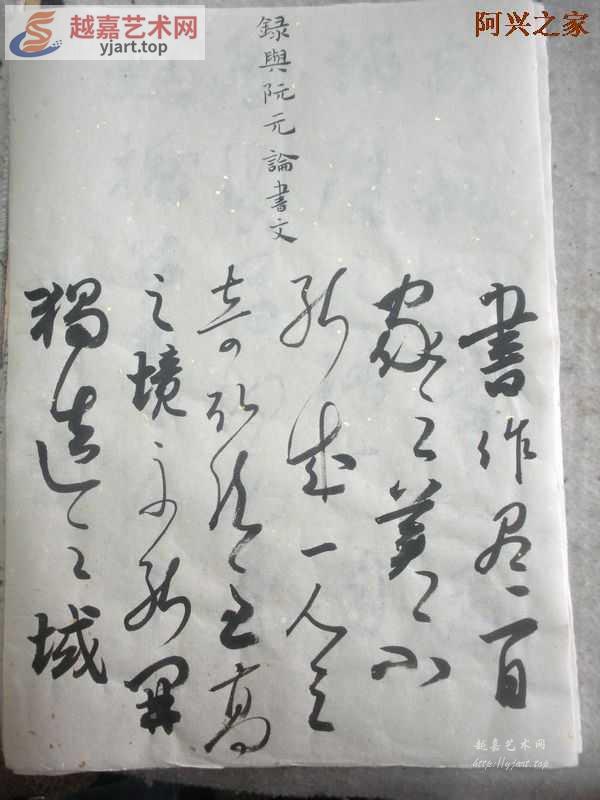 越嘉艺术网
yjart.top
阿兴之家
録與阮元論書文
書作尽百
家之美不
能成一人之
奇取法至高
之境不能開
獨造之域
越嘉艺术网
http://yjart.top